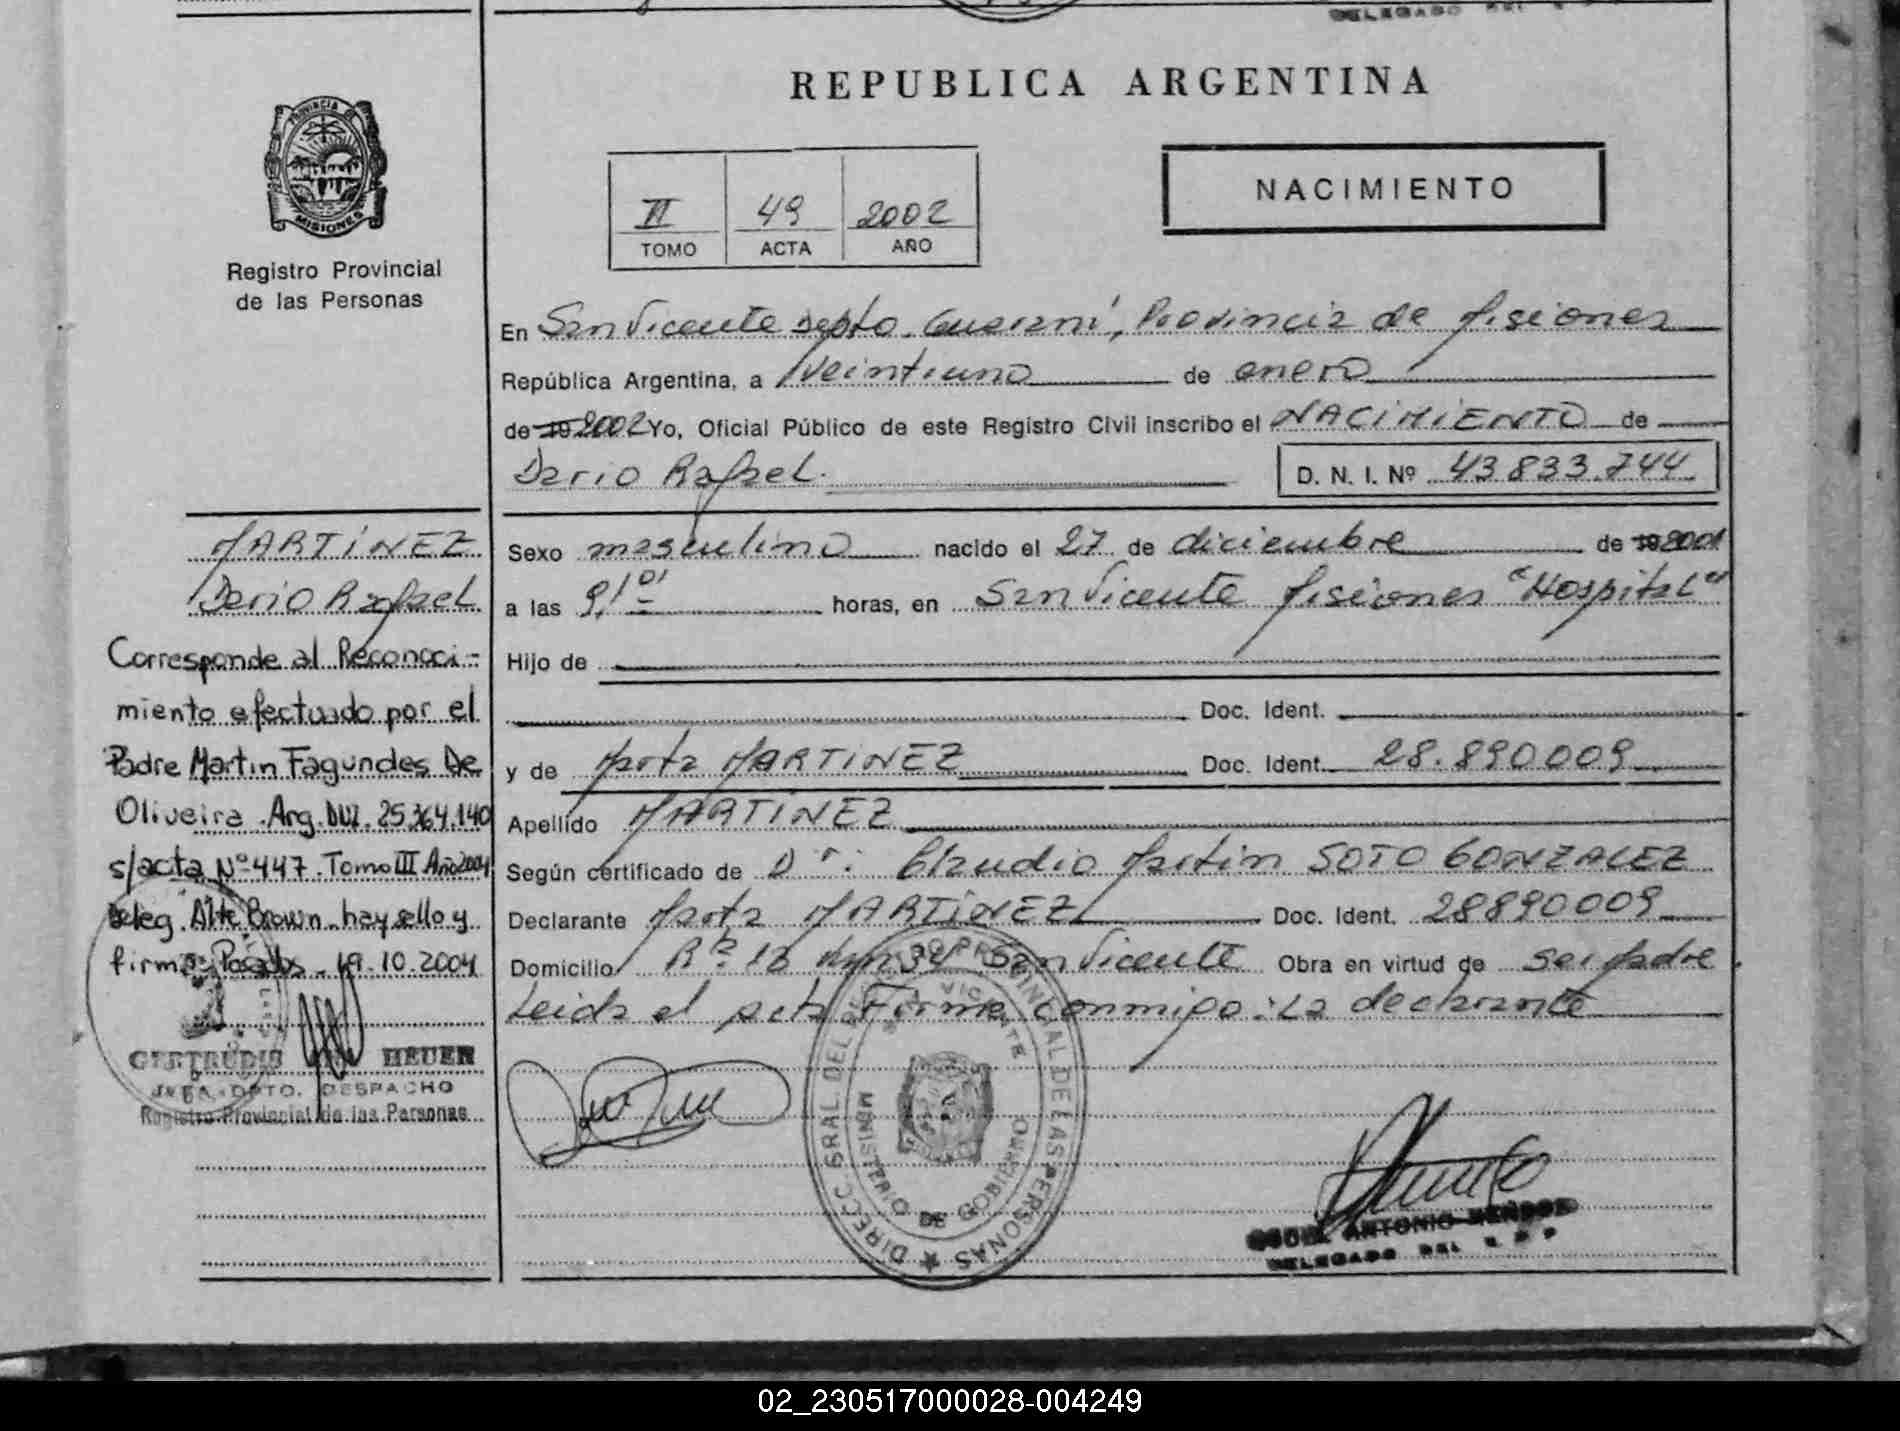 DELEGADO DEL
REPUBLICA ARGENTINA
PROVINCIA DE
MISIONES
Registro Provincial
de las Personas
NACIMIENTO
II 49 2002
TOMO ACTA AÑO
En San Vicente Depto. Guaraní, Provincia de Misiones
República Argentina, a Veintiuno de enero
de 19 2002 Yo, Oficial Público de este Registro Civil inscribo el NACIMIENTO de
Dario Rafael. D. N. I. Nº 43833.744
MARTINEZ
Dario Rafael
Corresponde al Reconoci-
miento efectuado por el
Padre Martin Fagundes De
Oliveira. Arg. DNI. 25.364.140
s/acta Nº 447. Tomo III Año 2004
Deleg. Alte Brown. hay sello y
firma. Posadas. 19.10.2004
GERTRUDIS HEUER
JEFA DPTO. DESPACHO
Registro Provincial de las Personas
Sexo masculino nacido el 27 de diciembre de 19 2001
a las 9,10 horas, en San Vicente Misiones "Hospital"
Hijo de
Doc. Ident.
y de Marta MARTINEZ Doc. Ident. 28.890009
Apellido MARTINEZ
Según certificado de Dr: Claudio Martin SOTO GONZALEZ
Declarante Marta MARTINEZ Doc. Ident. 28890009
Domicilio San Vicente Obra en virtud de ser Madre
Leida el acta Firma conmigo: La declarante
DIRECC. GRAL. DEL REG. PROVINCIAL DE LAS PERSONAS
SAN VICENTE
MINISTERIO DE GOBIERNO
ANTONIO MENDOZ
DELEGADO DEL R P P
02_230517000028-004249